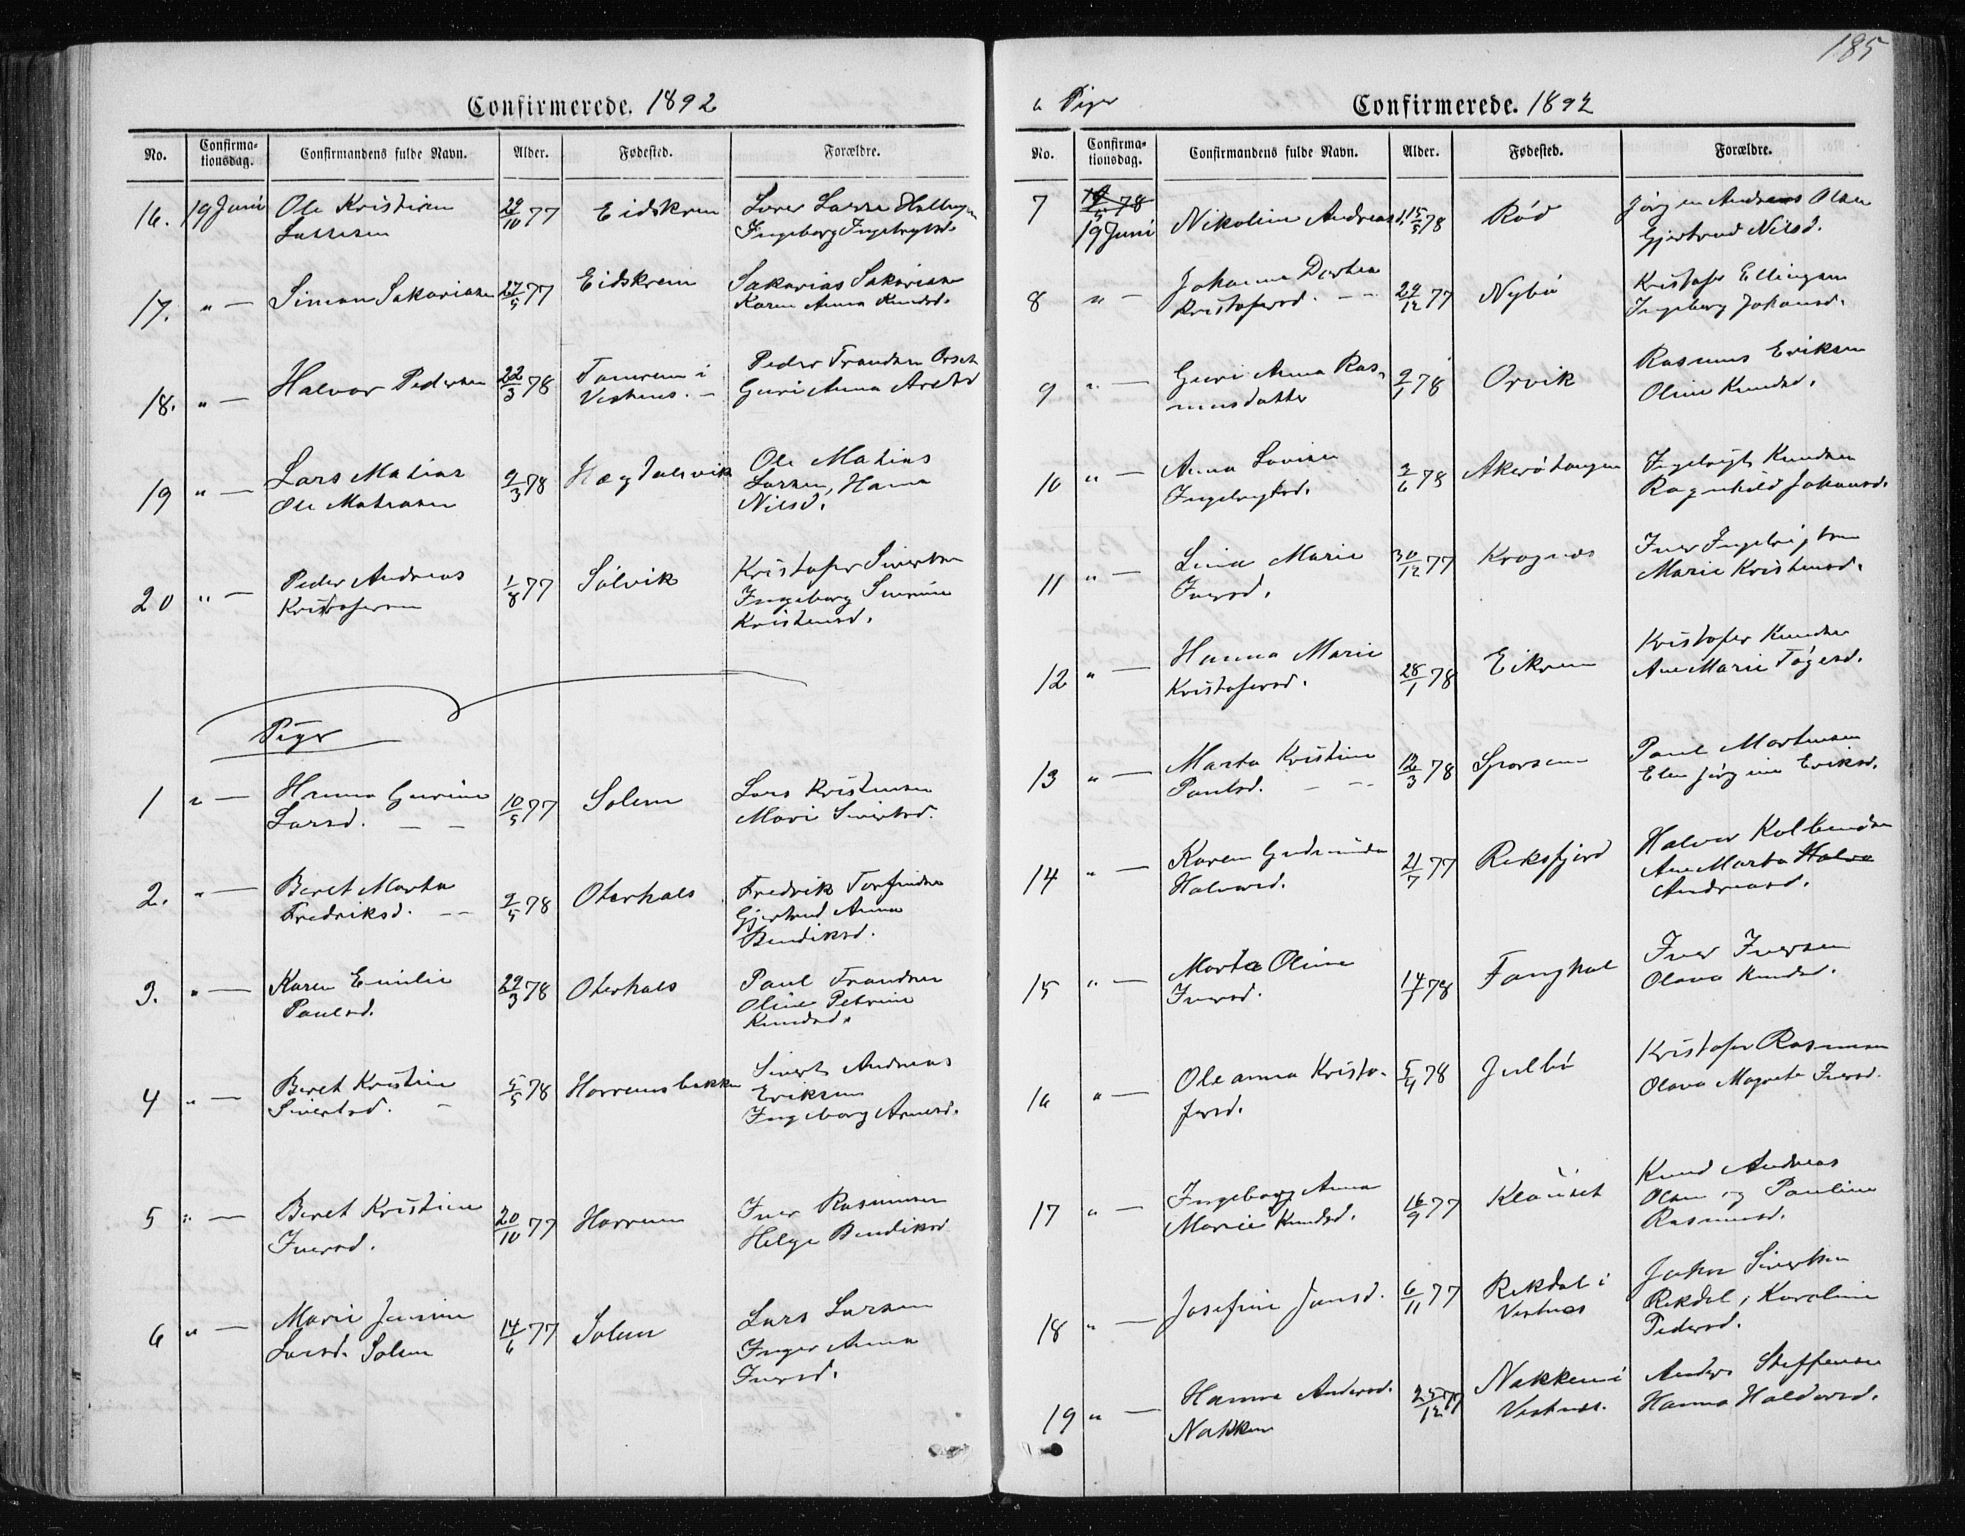 Confirmerede. 1892
No. Confirmationsdag. Confirmandens fulde Navn. Alder. Fødested. Forældre.
16. 19 Juni Ole Kristian 29/10 77 Eidskrem
Larsen Ingeborg Ingebrigtsd.
17. " — Simon Sakariasen 27/5 77 Eidskrem Sakarias Sakariasen
Karen Anna Knudsd.
18. " — Halvor Pedersen 22/3 78 Tomrem i Peder Trondsen Orset
Vestnes. — Guri Anna Arnesd
19 " — Lars Matias 9/3 78 Hægdalsvik Ole Matias
Ole Matiasen Larsen, Hanna
Nilsd.
20 " — Peder Andreas 1/8 77 Sølvik Kristofer Sivertsen
Kristofersen Ingeborg Sivrine
Kristensd.
Piger
1 " — Hanna Gurine 10/5 77 Solem Lars Kristensen
Larsd. — — Mari Sivertsd.
2. " — Beret Marta 2/5 78 Oterhals Fredrik Torfindsen
Fredriksd. — — Gjertrud Anna
Bendiksd.
3. " — Karen Emilie 29/3 78 Oterhals Paul Trondsen
Paulsd. Oline Petrine
Knudsd.
4 " — Beret Kristine 5/5 78 Horremsbakke Sivert Andreas
Sivertsd. — Eriksen
Ingeborg Arnesd.
5 " — Beret Kristine 20/10 77 Horrem Iver Rasmussen
Iversd. Helge Bendiksd
6 " — Marie Jensine 14/6 77 Solem Lars Larsen
Larsd. Solem Inger Anna
Iversd.
185
" Piger Confirmerede. 1892
No. Confirmationsdag. Confirmandens fulde Navn. Alder. Fødested. Forældre.
7 19 Juni Nikoline Andreasd. 15/5 78 Rød Jørgen Andreas Olsen
Gjertrud Nilsd.
8 " — Johanna Dortea 29/12 77 Nybø Kristofer Ellingsen
Kristofersd. — — Ingeborg Johansd.
9 " — Guri Anna Ras- 9/1 78 Orvik Rasmus Eriksen
musdatter Oline Knudsd.
10 " — Anna Lovise 2/6 78 Akerøtangen Ingebrigt Knudsen
Ingebrigtsd. Ragnhild Johansd.
11 " — Lina Marie 30/12 77 Kragnes Iver Ingebrigtsen
Iversd. Marie Kristensd.
12 " — Hanna Marie 28/1 78 Eikrem Kristofer Knudsen
Kristofersd. Ane Marie Tøgesd.
13 " — Marta Kristine 12/3 78 Sporsem Paul Mortensen
Paulsd. — — Elen Jørgine Eriksd.
14 " — Karen Gudminda 21/7 77 Reksfjord Halvor Kolbendsen
Halvorsd. Ane Marta Halvo
Andreasd.
15 " — Marta Oline 14/1 78 Fanghol Iver Iversen
Iversd. Olava Knudsd.
16 " — Oleanna Kristo- 5/4 78 Julbø Kristofer Rasmussen
fersd. Olava Magrete Iversd.
17 " — Ingeborg Anna 16/9 77 Klauset Knud Andreas
Marie Knudsd. Olsen og Pauline
Rasmusd.
18 " — Josefine Jonsd. 6/11 77 Rekdal i Sivertsen
Vestnes Rekdal, Karoline
Pedersd.
19 " — Hanna Andersd. 25/12 77 Nakken i Anders Steffensen
Nakken Vestnes. Hanna Haldorsd.